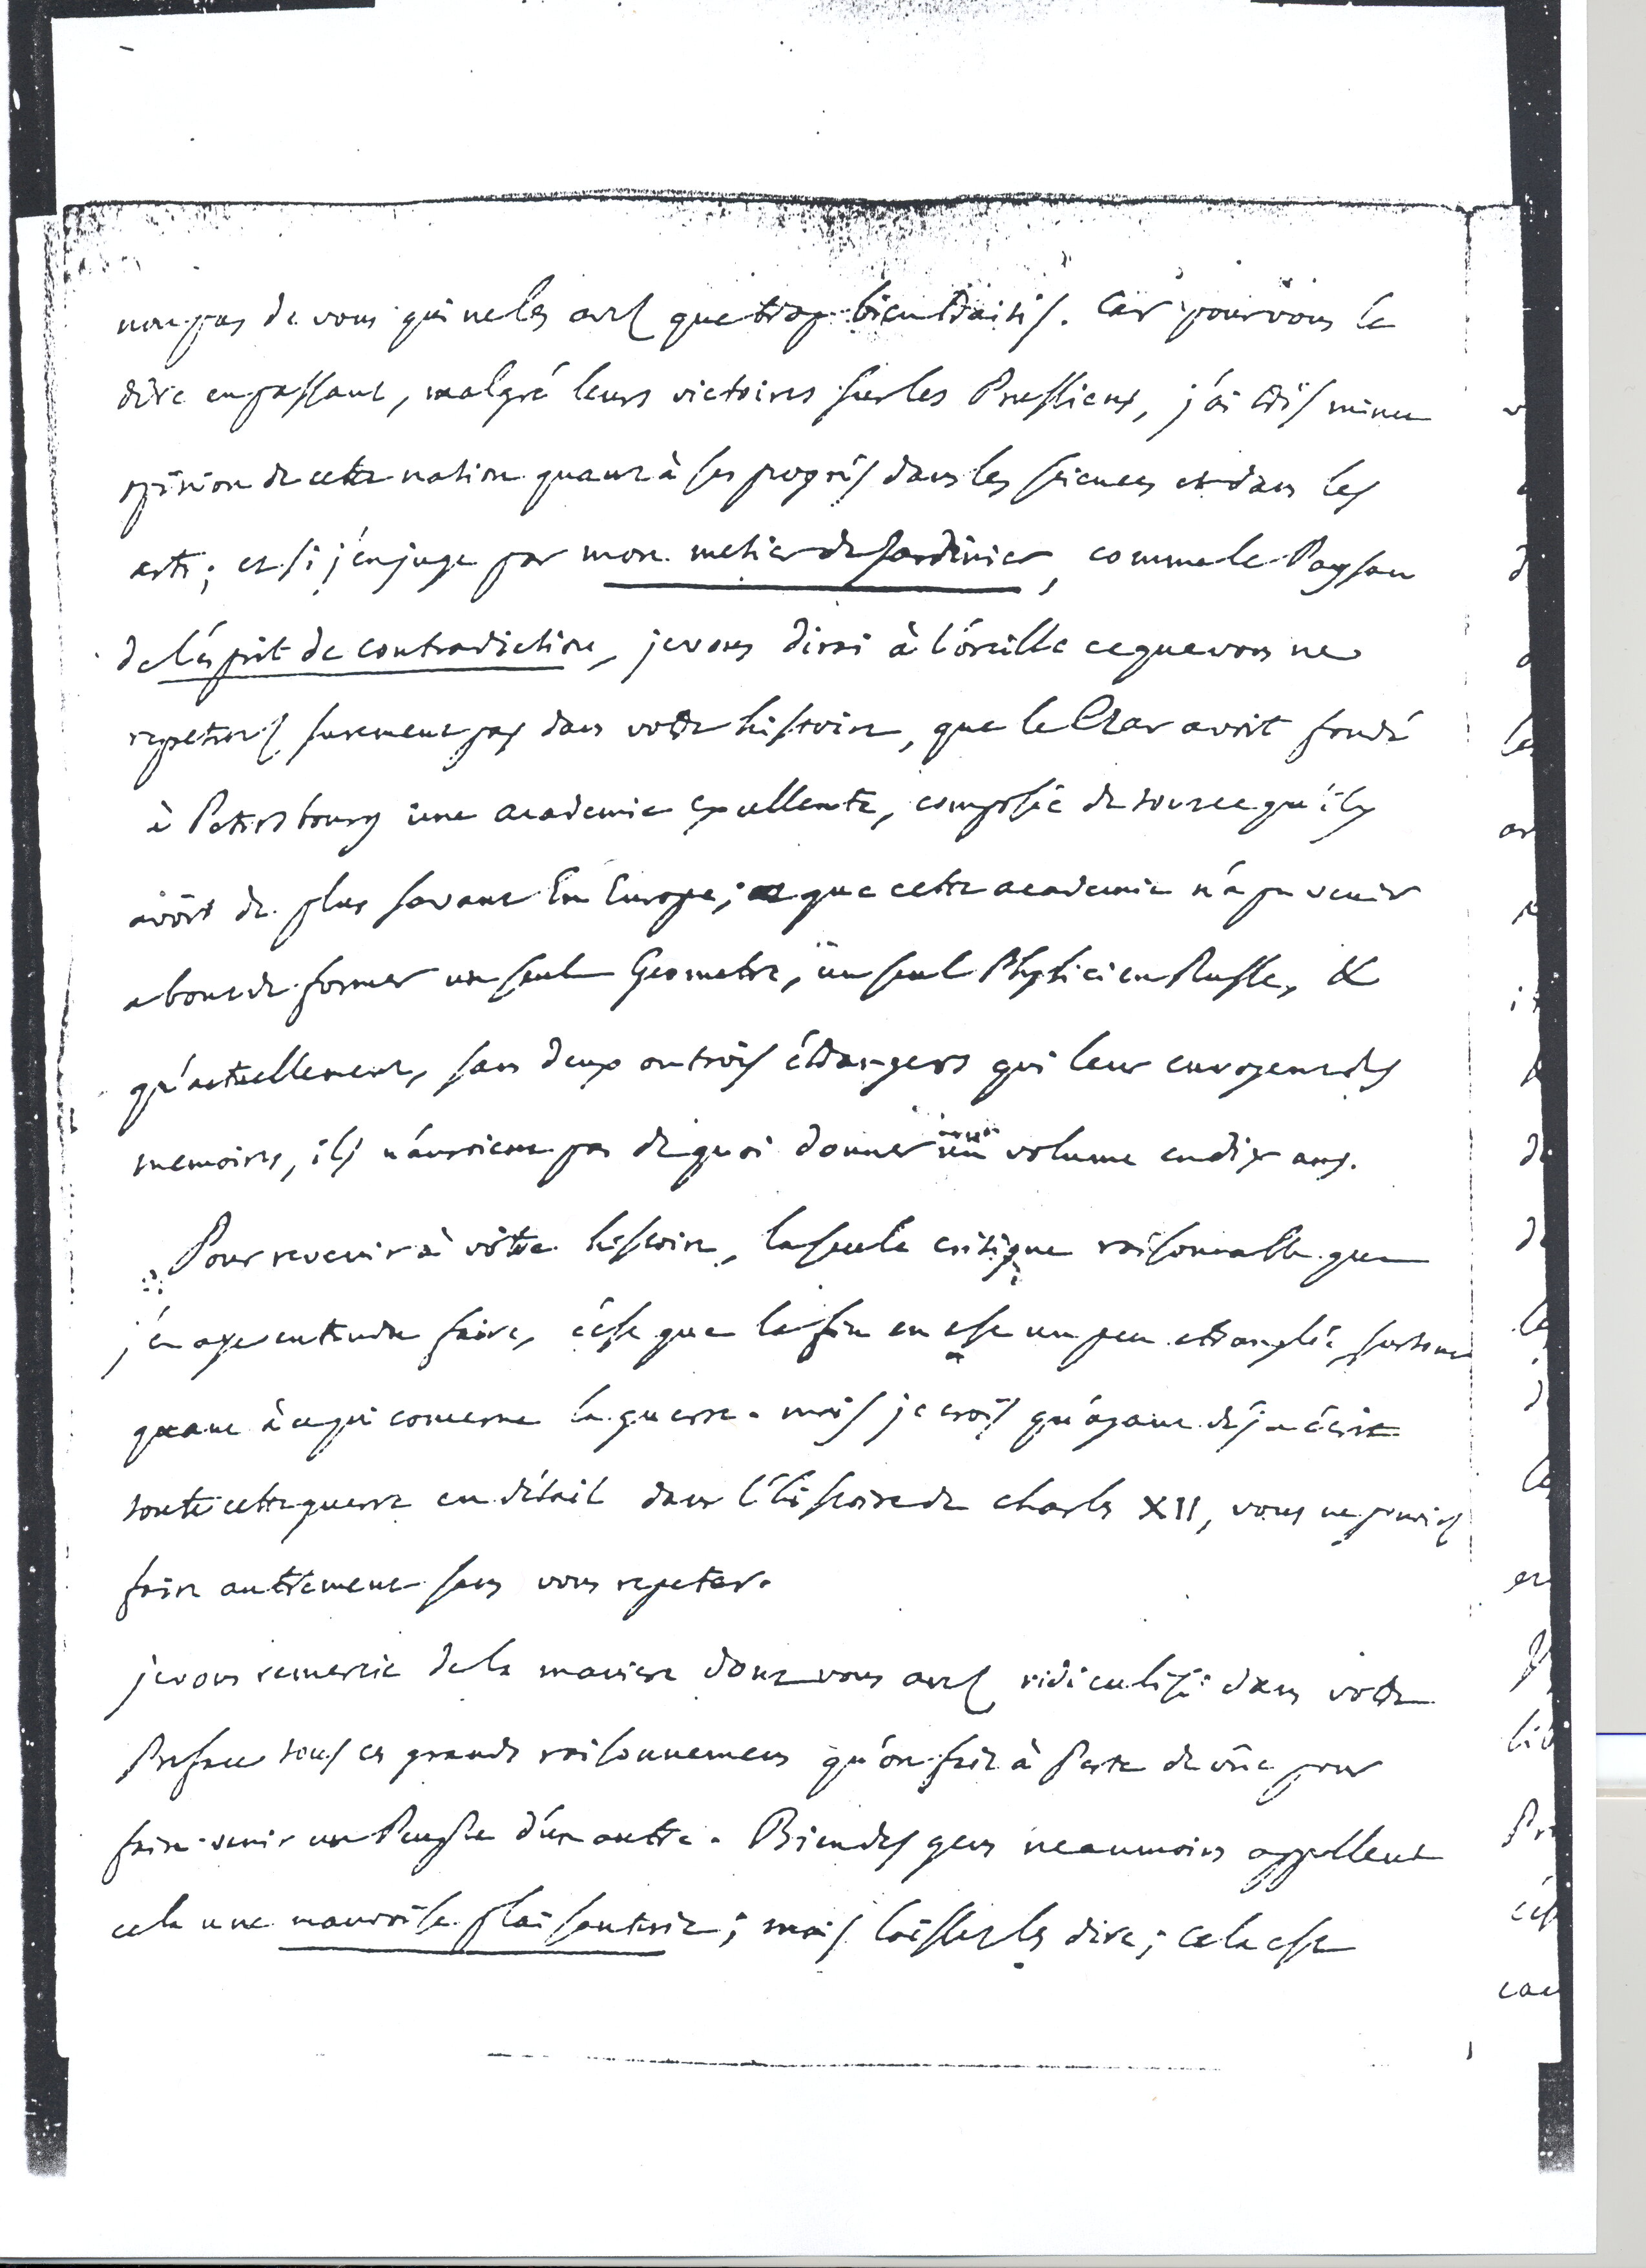 non pas de vous qui ne les avez que trop bien traités. Car pour vous le
dire en passant, malgré leurs victoires sur les Prussiens, j'ai très mince
opinion de cette nation quant à ses progrès dans les sciences et dans les
arts; et si j'en juge par mon metier de Jardinier, comme le Paysan
de l'ésprit de contradiction, je vous dirai à l'oreille ce que vous ne
repeterez surement pas dans votre histoire, que le Czar avoit fondé
à Petersbourg une academie excellente, composée de tout ce qu'il y
avoit de plus savant En Europe; que cette academie n'a pu venir
a bout de former un seul Geometre, un seul Physicien Russe, &
qu'actuellement, sans deux ou trois étrangers qui leur envoyent des
memoires, ils n'auroient pas de quoi donner un volume en dix ans.
Pour revenir à vôtre histoire, la seule critique raisonnable que
j'en aye entendu faire, c'est que la fin en est un peu etranglée, surtout
quant à ce qui concerne la guerre. mais je crois qu'ayant déja écrit
toute cette guerre en détail dans l'histoire de charles XII, vous ne pouviez
faire autrement sans vous repeter.
je vous remercie de la maniere dont vous avez ridiculisé dans votre
Preface tous ces grands raisonnemens qu'on fait à Perte de vüe pour
faire venir un Peuple d'un autre. Bien des gens neanmoins appellent
cela une mauvaise plaisanterie; mais laissez les dire; cela est